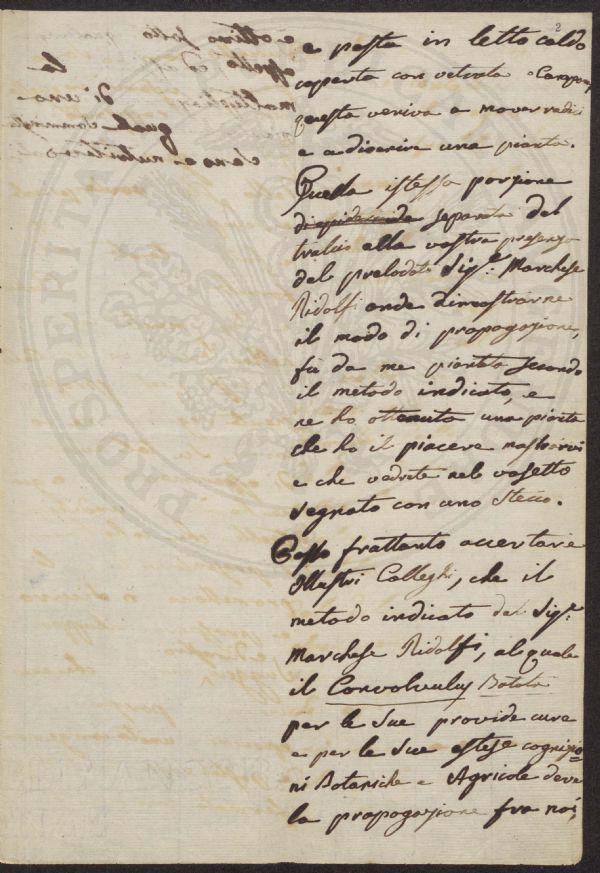 2
e posta in letto caldo
coperta con vetrata o Campana
questa veniva a mover radici
e a divenire una pianta.
Quella istessa porzione
separata dal
tralcio alla vostra presenza
dal prelodato Sig.e Marchese
Ridolfi onde dimostrarne
il modo di propagazione,
fù da me piantata secondo
il metodo indicato, e
ne ho ottenuta una pianta
che ho il piacere mostrarvi
e che vedrete nel vasetto
segnato con uno stecco.
Posso frattanto accertare
Illustri Colleghi, che il
metodo indicato dal Sig.e
Marchese Ridolfi, al quale
il Convolvulus Batata
per le sue provide cure
e per le sue estese cognizio=
ni Botaniche e Agricole deve
la propagazione fra noi,
PROSPERITA